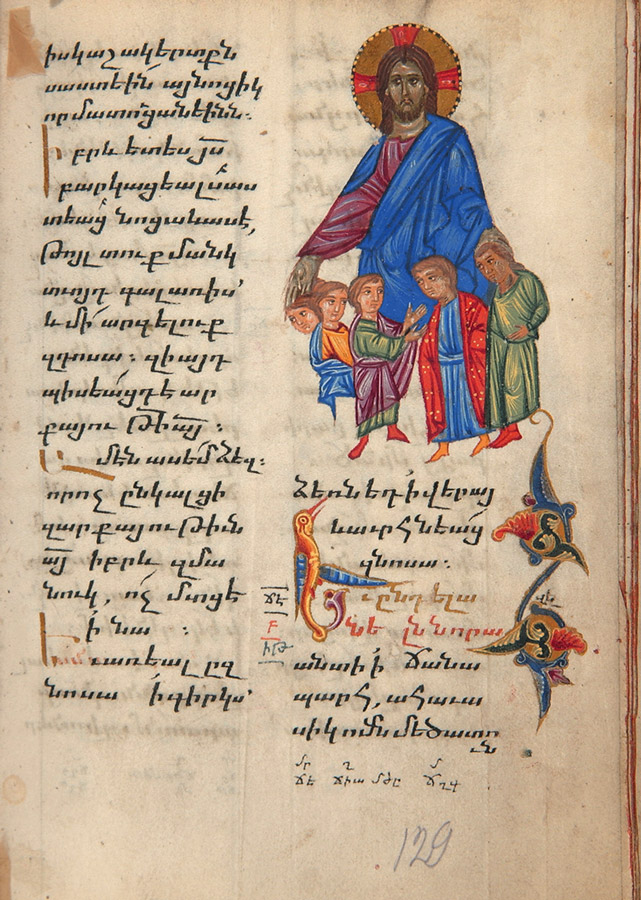 իսկ աշակերտքն
սաստէին այնոցիկ
որ մատուցանէինն։
Իբրև ետես յս
բարկացեալ սաս
տեաց նոցա և ասէ,
Թոյլ տուք մանկ
տւոյդ գալ առիս՝
և մի՛ արգելուք
զդոսա։ զի այդ
պիսեացդ է ար
քայութի այ։
Ամէն ասեմ ձեզ։
որ ոչ ընկալցի
զարքայութին
այ իբրև զմա
նուկ, ոչ մտցէ
ի նա։
Եւ առեալ զ
նոսա ի գիրկս՝
ձեռն եդ ի վերայ
և աւրհնեաց
զնոսա։
Եւ ընդ ելա
նել նորա
անտի ի ճանա
պարհ, ահաւա
սիկ ոմն մեծատուն
129